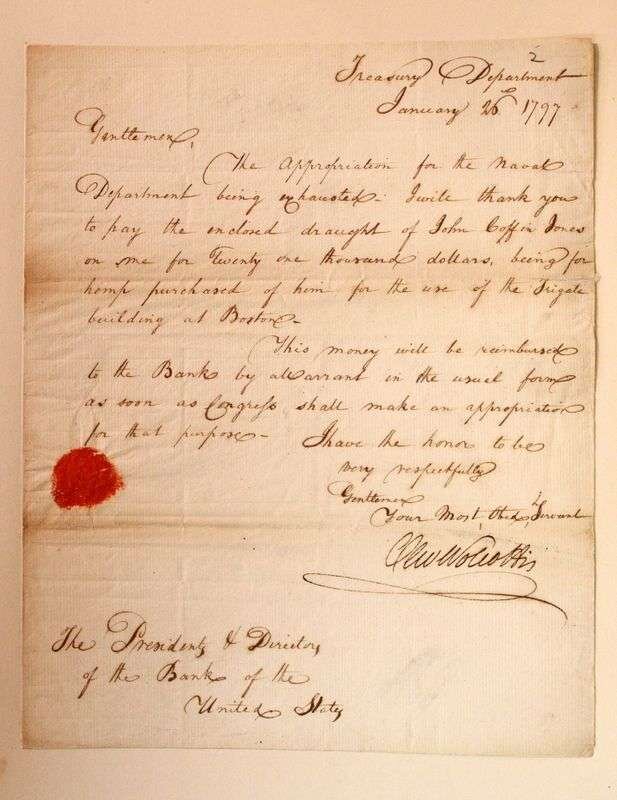 2
Treasury Department
January 26th 1797
Gentlemen,
The Appropriation for the Naval
Department being exhausted- I will thank you
to pay the enclosed draught of John Coffin Jones
on me for Twenty one thousand dollars, being for
hemp purchased of him for the use of the Frigate
building at Boston-
This money will be reimbursed
to the Bank by a Warrant in the usual form
as soon as Congress shall make an appropriation
for that purpose-
I have the honor to be
very respectfully
Gentlemen
Your Most Obedt Servant
Oliv Wolcott Jr
The President, & Directors
of the Bank of the
United States